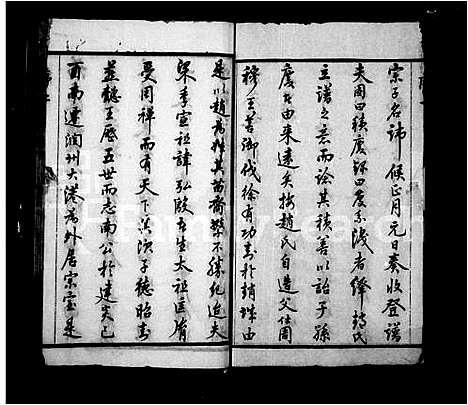 宗子名諱候正月元日奏收登譜
夫閥曰積慶錄曰慶系淺者繹趙氏
主譜之意而論其積善以詒子孫
慶者由来遠矣按趙氏自造父仕周
穆王善御伐徐有功封於趙城由
是以趙為姓其苗裔繁不勝紀迨夫
梁季宣祖諱弘殷生太祖匡胤
受周禪而有天下其次子德昭封
燕懿王歷五世而志南公於建炎己
酉南遷潤州大港為外居宗室是
FamilySearch